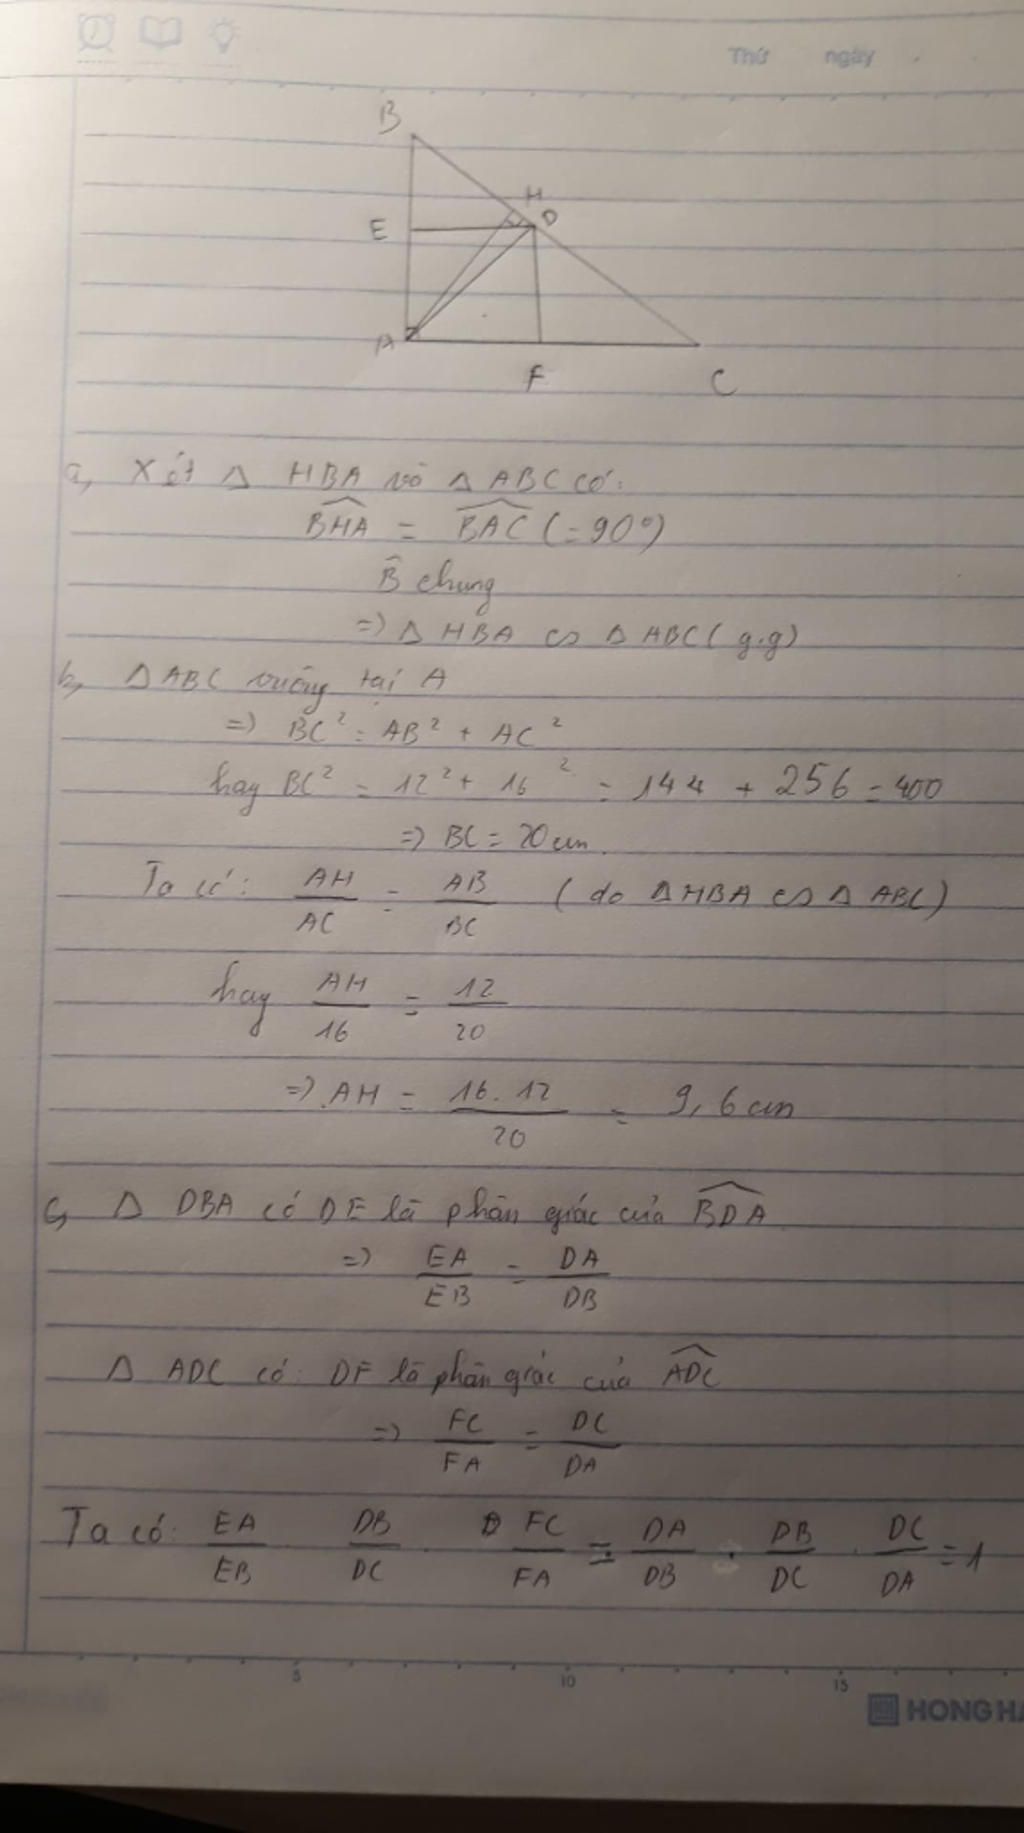 Thứ ngày
B
H
E D
A
F C
a, Xét Δ HBA và Δ ABC có:
\widehat{BHA} = \widehat{BAC} (=90°)
\hat{B} chung
=> Δ HBA ∽ Δ ABC (g.g)
b, Δ ABC vuông tại A
=> BC² = AB² + AC²
hay BC² = 12² + 16² = 144 + 256 = 400
=> BC = 20 cm.
Ta có: \frac{AH}{AC} = \frac{AB}{BC} (do Δ HBA ∽ Δ ABC)
hay \frac{AH}{16} = \frac{12}{20}
=> AH = \frac{16.12}{20} = 9,6 cm
c, Δ DBA có DE là phân giác của \widehat{BDA}
=> \frac{EA}{EB} = \frac{DA}{DB}
Δ ADC có: DF là phân giác của \widehat{ADC}
=> \frac{FC}{FA} = \frac{DC}{DA}
Ta có: \frac{EA}{EB} . \frac{DB}{DC} . \frac{FC}{FA} = \frac{DA}{DB} . \frac{DB}{DC} . \frac{DC}{DA} = 1
5 10 15
HONG HA